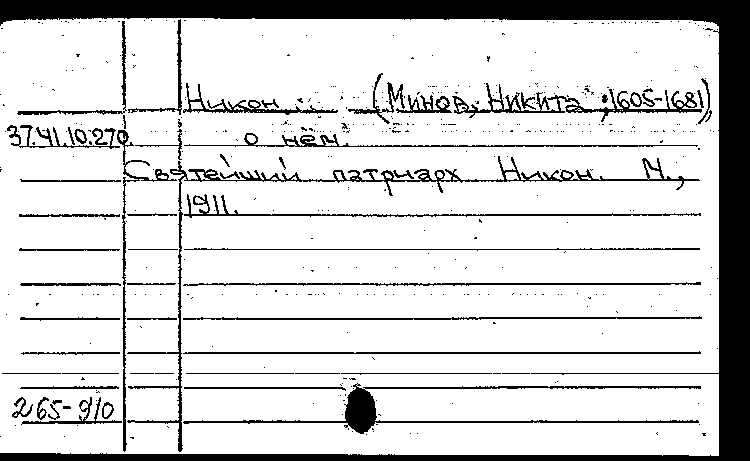 Никон (Минов, Никита ; 1605-1681)
37.41.10.270. о нём.
Святейший патриарх Никон. М.,
1911.
265-910